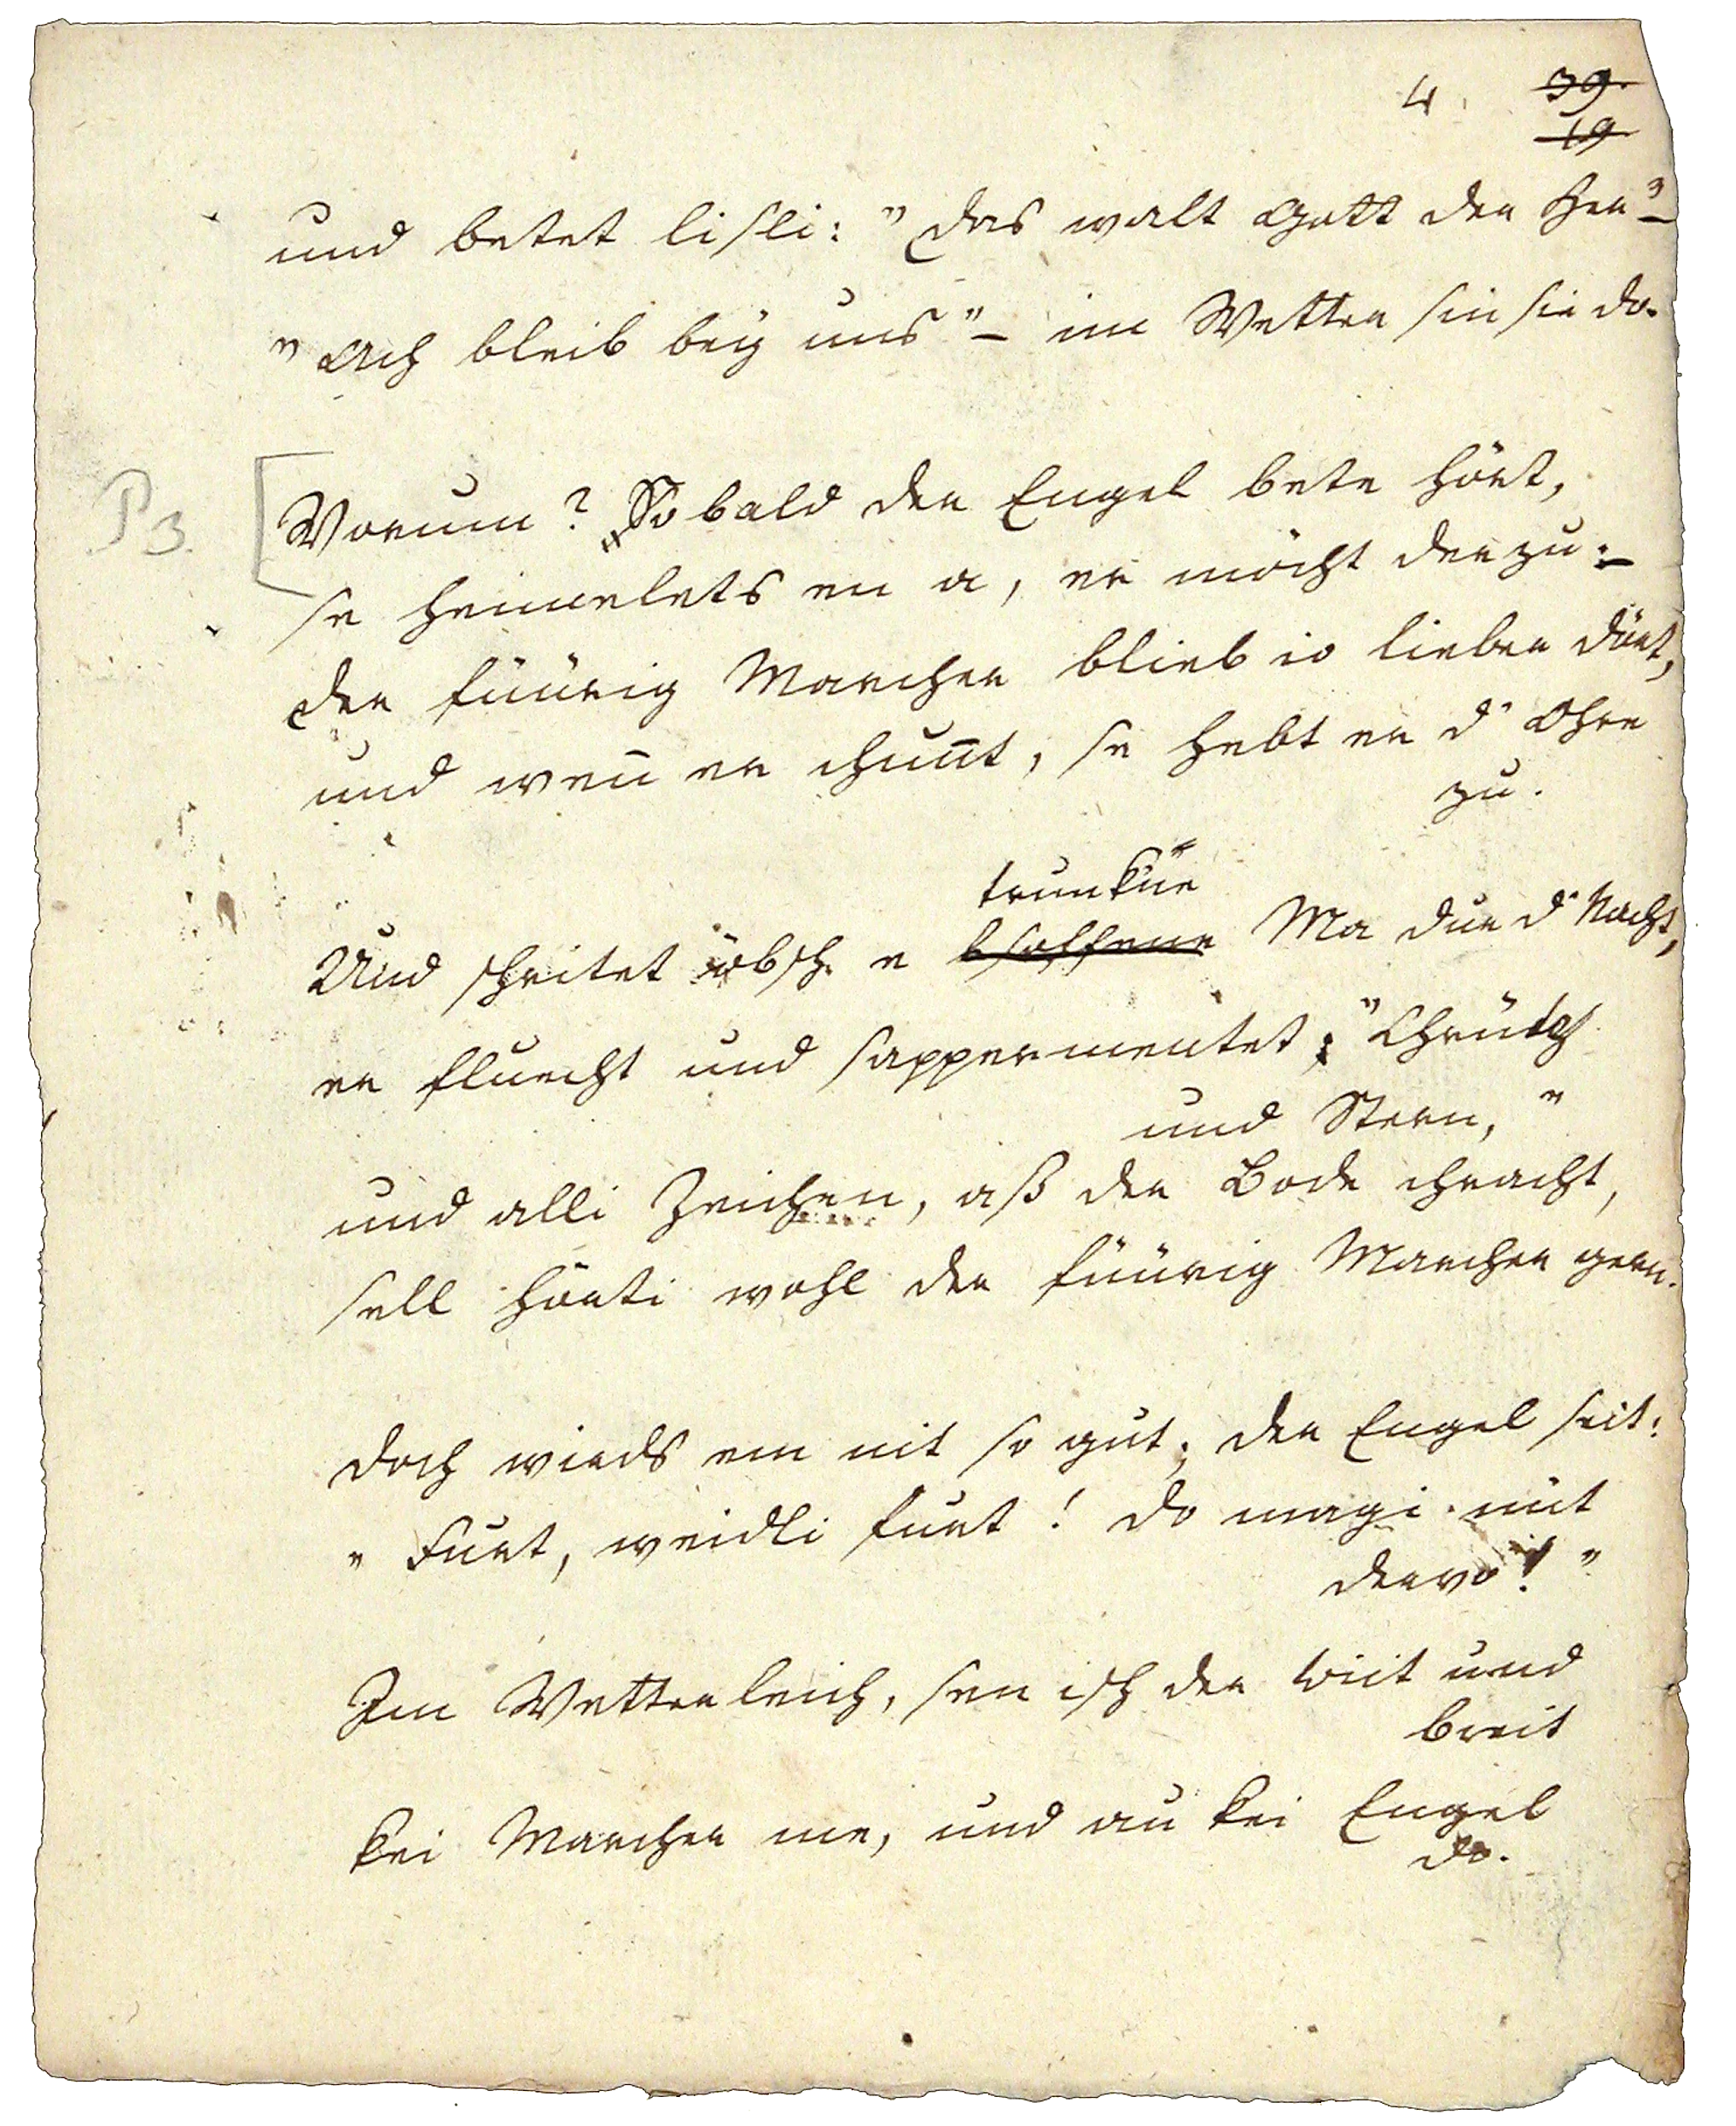 4. 39.
19
und betet lisli: "Das walt Gott der Her"–
"Ach bleib bey uns"– im Wetter sin sie do.
P 3.
Worum? So bald der Engel bete hört,
se heimelets en a, er möcht derzu.–
der füürig Marcher blieb io lieber dört,
und weñ er chuñt, se hebt er d' Ohre
zu.
trunkne
Und schritet öbsch e bsoffene Ma dur d' Nacht,
er fluecht und sappermentet; "Chrütz
und Stern,"
und alli Zeichen, aß der Bode chracht,
sell hörti wohl der füürig Marcher gern.
doch wirds em nit so gut; der Engel seit:
"Furt, weidli furt! do magi nüt
dervo!"
Im Wetterleich, sen isch der wiit und
breit
kei Marcher me, und au kei Engel
do.